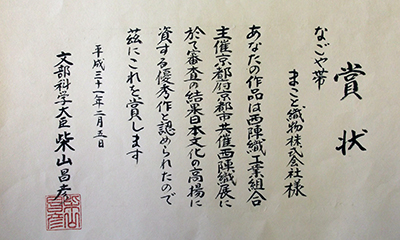 賞状
なごや帯
まこと織物株式会社様
あなたの作品は西陣織工業組合
主催京都府京都市共催西陣織展に
於て審査の結果日本文化の高揚に
資する優秀作と認められたので
茲にこれを賞します
平成三十一年二月五日
文部科学大臣 柴山昌彦